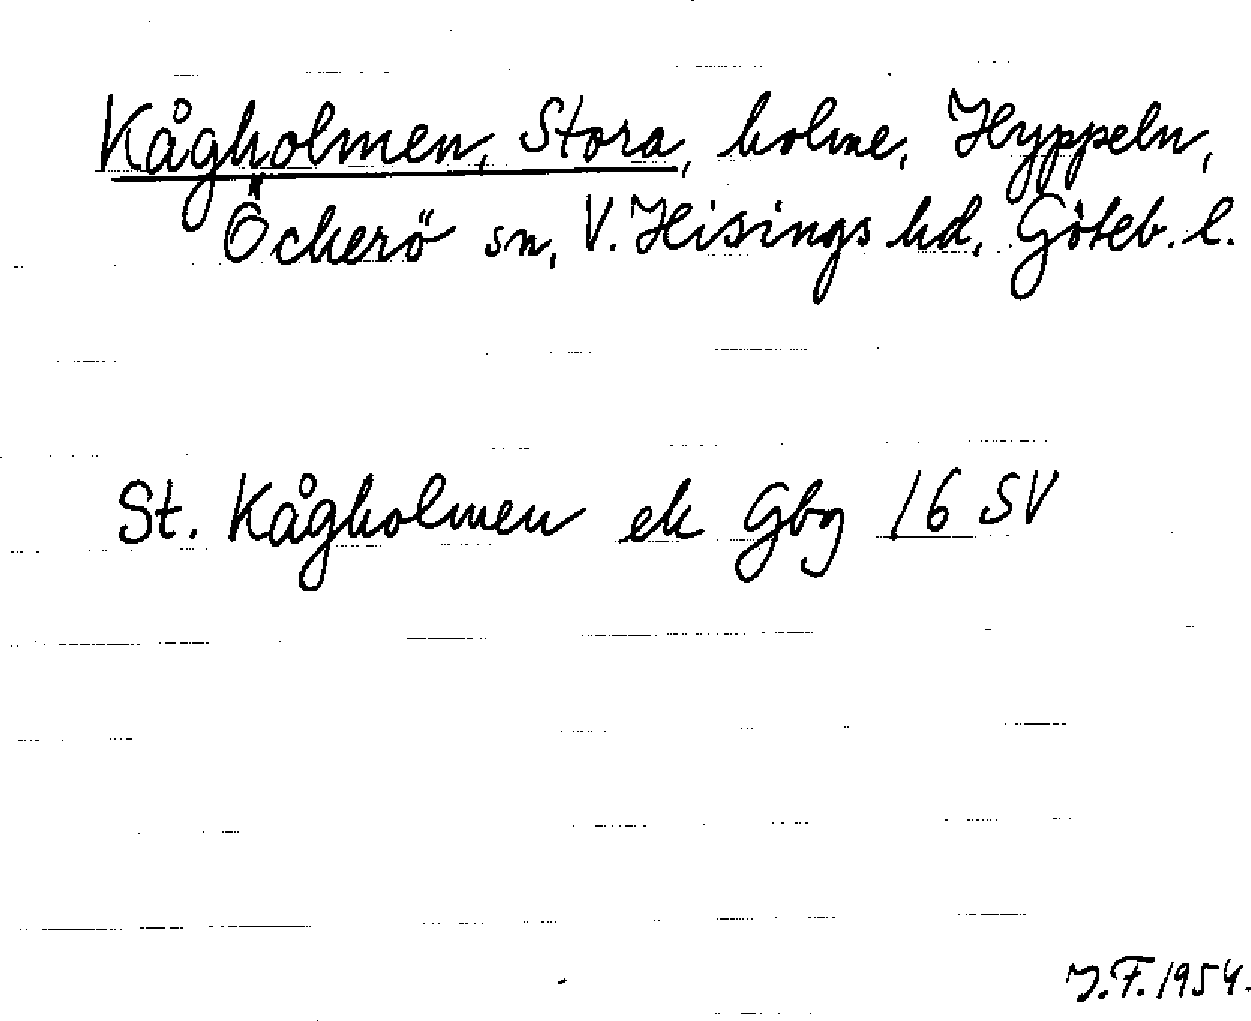 Kågholmen, Stora, holme, Hyppeln,
Öckerö sn, V. Hisings hd, Göteb. l.
St. Kågholmen ek Gbg 16 SV
J.F. 1954.